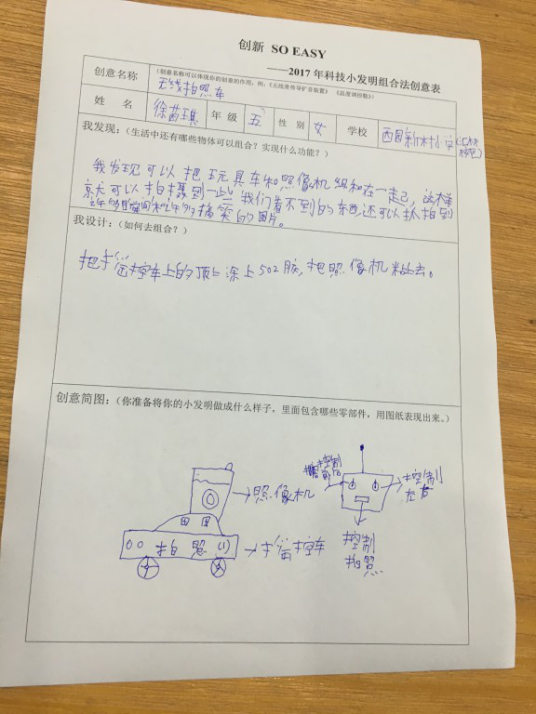 创新 SO EASY
——2017 年科技小发明组合法创意表
创意名称
无线拍照车
姓 名 徐苗琪 年 级 五 性 别 女 学校 西固新村小学
我发现：（生活中还有哪些物体可以组合？实现什么功能？）
我发现可以把玩具车和照像机组和在一起，这样
就可以拍摄到一些我们看不到的东西,还可以抓拍到
搞笑的图片。
我设计：（如何去组合？）
把扌遥控车上的顶上涂上502胶,把照像机粘上去。
创意简图：（你准备将你的小发明做成什么样子，里面包含哪些零部件，用图纸表现出来。）
照像机
控制
控制
左右
拍照
遥控车
控制
拍照